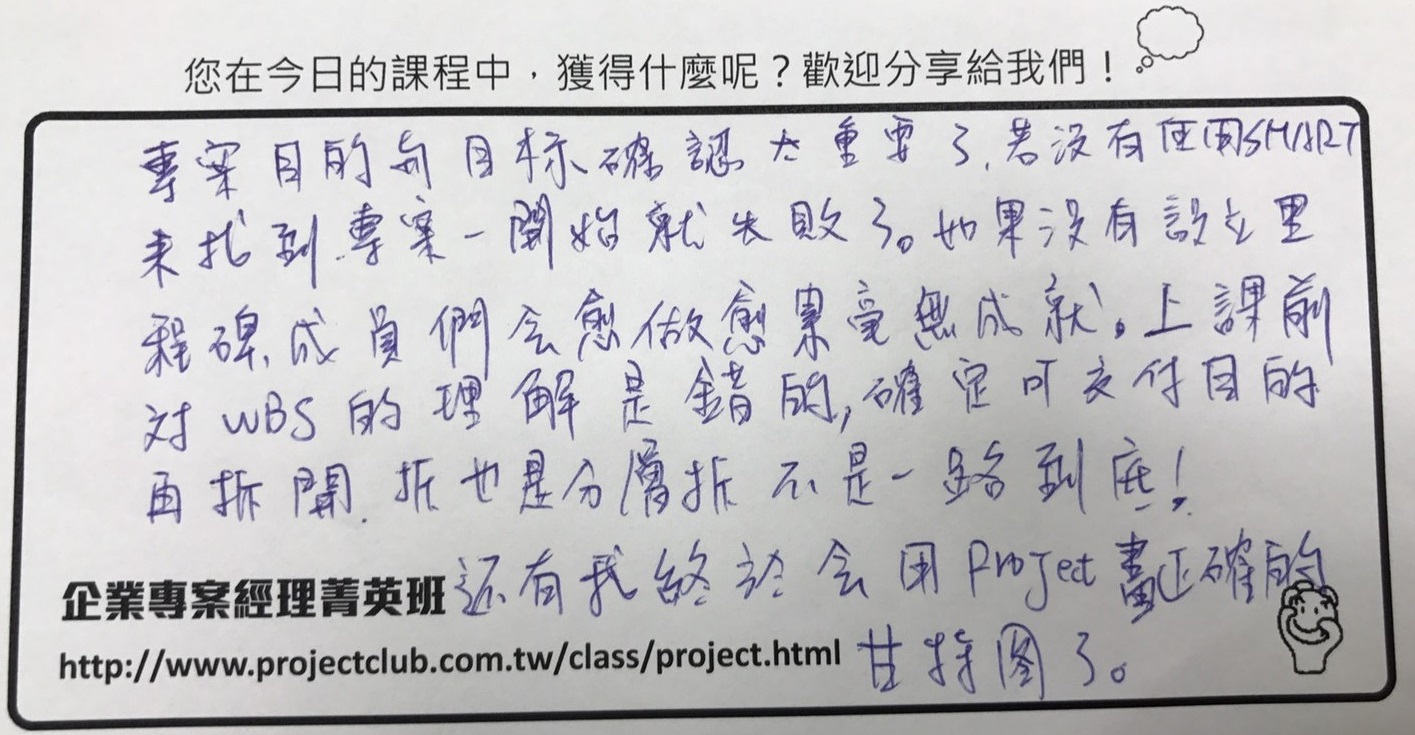 您在今日的課程中，獲得什麼呢？歡迎分享給我們！
專案目的與目標確認太重要了，若沒有使用SMART
來找到專案一開始就失敗了。如果沒有設立里
程碑，成員們会愈做愈累毫無成就。上課前
對WBS的理解是錯的，確定可交付目的
再拆開，拆也是分層拆不是一路到底！
企業專案經理菁英班 还有我終於会用Project畫正確的
http://www.projectclub.com.tw/class/project.html 甘特圖了。